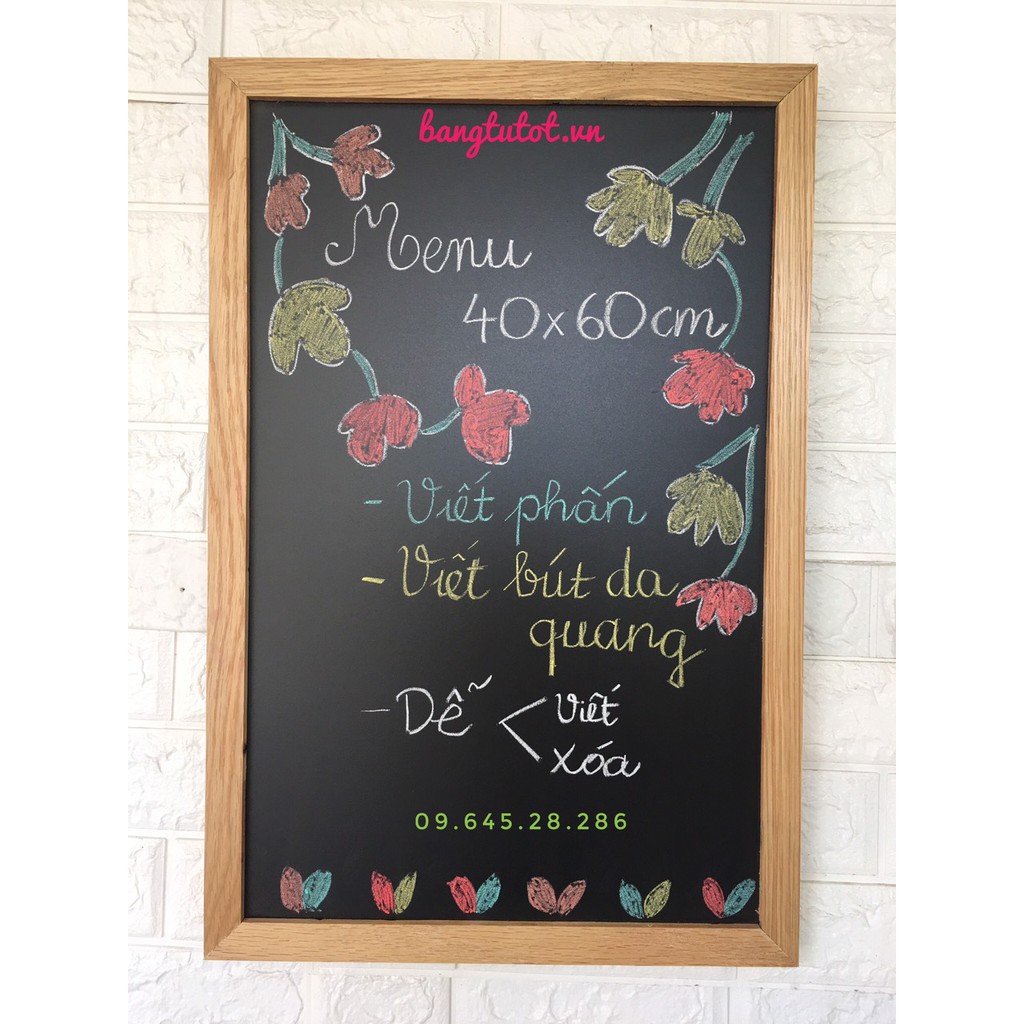 bangtutot.vn
Menu
40x60cm
- Viết phấn
- Viết bút da
quang
- Dễ < Viết
xóa
09.645.28.286